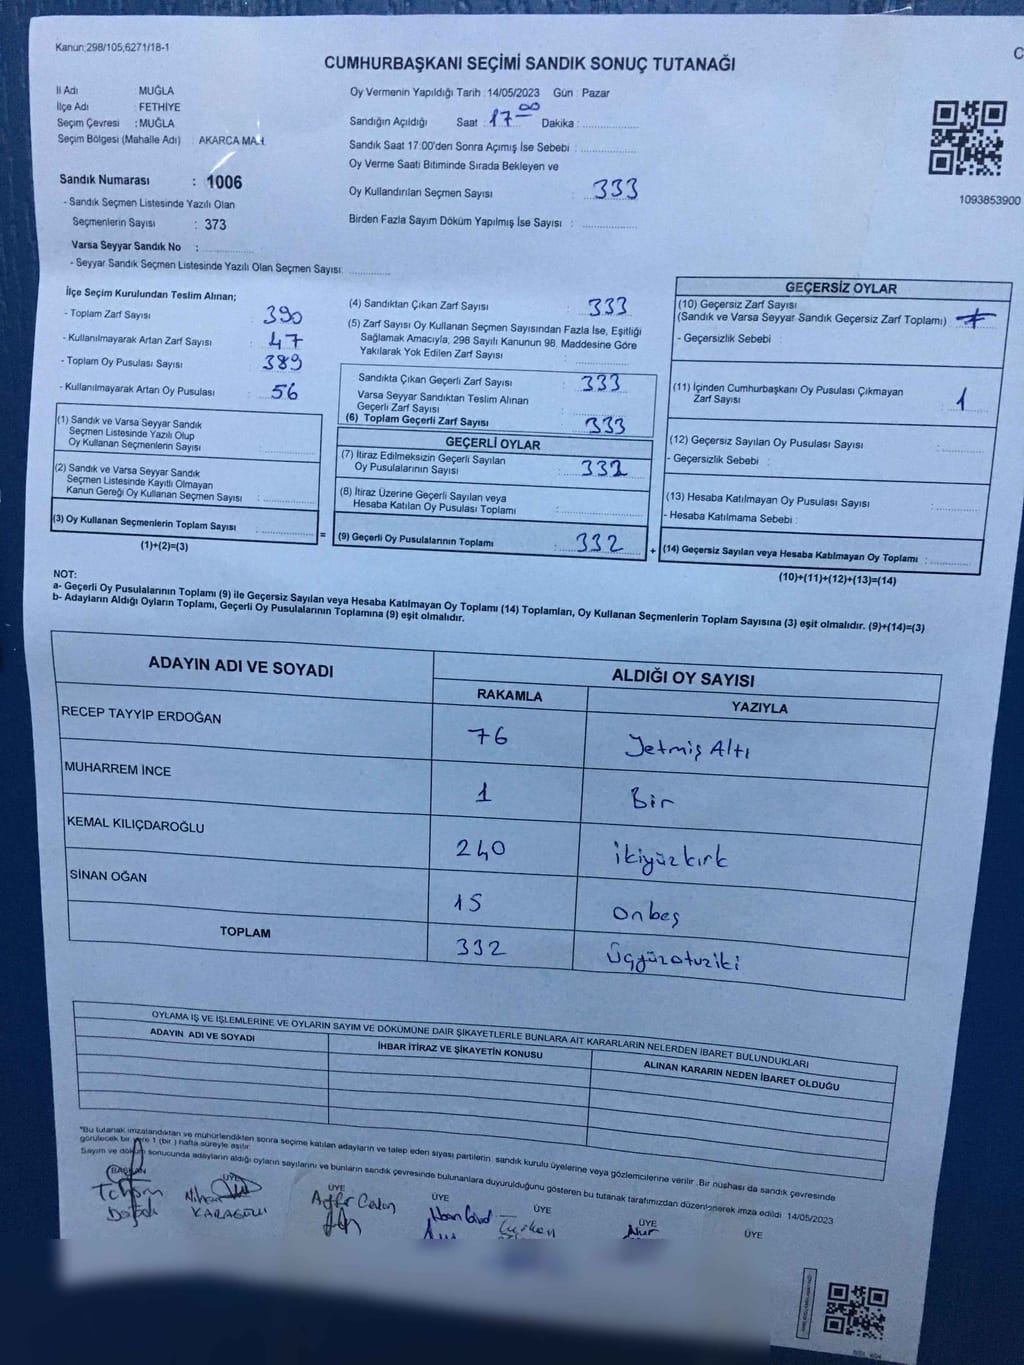 Kanun;298/105,6271/18-1
C
CUMHURBAŞKANI SEÇİMİ SANDIK SONUÇ TUTANAĞI
İl Adı : MUĞLA
İlçe Adı : FETHİYE
Seçim Çevresi : MUĞLA
Seçim Bölgesi (Mahalle Adı) : AKARCA MAH.
Sandık Numarası : 1006
- Sandık Seçmen Listesinde Yazılı Olan
Seçmenlerin Sayısı : 373
Varsa Seyyar Sandık No :
- Seyyar Sandık Seçmen Listesinde Yazılı Olan Seçmen Sayısı:
Oy Vermenin Yapıldığı Tarih : 14/05/2023 Gün : Pazar
Sandığın Açıldığı Saat : 17 00 Dakika :
Sandık Saat 17:00'den Sonra Açımış İse Sebebi :
Oy Verme Saati Bitiminde Sırada Bekleyen ve
Oy Kullandırılan Seçmen Sayısı : 333
Birden Fazla Sayım Döküm Yapılmış İse Sayısı :
1093853900
İlçe Seçim Kurulundan Teslim Alınan;
- Toplam Zarf Sayısı : 390
- Kullanılmayarak Artan Zarf Sayısı : 47
- Toplam Oy Pusulası Sayısı : 389
- Kullanılmayarak Artan Oy Pusulası : 56
(1) Sandık ve Varsa Seyyar Sandık
Seçmen Listesinde Yazılı Olup
Oy Kullanan Seçmenlerin Sayısı :
(2) Sandık ve Varsa Seyyar Sandık
Seçmen Listesinde Kayıtlı Olmayan
Kanun Gereği Oy Kullanan Seçmen Sayısı :
(3) Oy Kullanan Seçmenlerin Toplam Sayısı :
(1)+(2)=(3)
=
(4) Sandıktan Çıkan Zarf Sayısı : 333
(5) Zarf Sayısı Oy Kullanan Seçmen Sayısından Fazla İse, Eşitliği
Sağlamak Amacıyla, 298 Sayılı Kanunun 98. Maddesine Göre
Yakılarak Yok Edilen Zarf Sayısı :
Sandıkta Çıkan Geçerli Zarf Sayısı : 333
Varsa Seyyar Sandıktan Teslim Alınan
Geçerli Zarf Sayısı :
(6) Toplam Geçerli Zarf Sayısı : 333
GEÇERLİ OYLAR
(7) İtiraz Edilmeksizin Geçerli Sayılan
Oy Pusulalarının Sayısı : 332
(8) İtiraz Üzerine Geçerli Sayılan veya
Hesaba Katılan Oy Pusulası Toplamı :
(9) Geçerli Oy Pusulalarının Toplamı : 332
+
GEÇERSİZ OYLAR
(10) Geçersiz Zarf Sayısı
(Sandık ve Varsa Seyyar Sandık Geçersiz Zarf Toplamı) :
- Geçersizlik Sebebi :
(11) İçinden Cumhurbaşkanı Oy Pusulası Çıkmayan
Zarf Sayısı : 1
(12) Geçersiz Sayılan Oy Pusulası Sayısı :
- Geçersizlik Sebebi :
(13) Hesaba Katılmayan Oy Pusulası Sayısı :
- Hesaba Katılmama Sebebi :
(14) Geçersiz Sayılan veya Hesaba Katılmayan Oy Toplamı :
(10)+(11)+(12)+(13)=(14)
NOT:
a- Geçerli Oy Pusulalarının Toplamı (9) ile Geçersiz Sayılan veya Hesaba Katılmayan Oy Toplamı (14) Toplamları, Oy Kullanan Seçmenlerin Toplam Sayısına (3) eşit olmalıdır. (9)+(14)=(3)
b- Adayların Aldığı Oyların Toplamı, Geçerli Oy Pusulalarının Toplamına (9) eşit olmalıdır.
ADAYIN ADI VE SOYADI
ALDIĞI OY SAYISI
RAKAMLA YAZIYLA
RECEP TAYYİP ERDOĞAN 76 Yetmiş Altı
MUHARREM İNCE 1 Bir
KEMAL KILIÇDAROĞLU 240 ikiyüzkırk
SİNAN OĞAN 15 onbeş
TOPLAM 332 Üçyüzotuziki
OYLAMA İŞ VE İŞLEMLERİNE VE OYLARIN SAYIM VE DÖKÜMÜNE DAİR ŞİKAYETLERLE BUNLARA AİT KARARLARIN NELERDEN İBARET BULUNDUKLARI
ADAYIN ADI VE SOYADI İHBAR İTİRAZ VE ŞİKAYETİN KONUSU ALINAN KARARIN NEDEN İBARET OLDUĞU
*Bu tutanak imzalandıktan ve mühürlendikten sonra seçime katılan adayların ve talep eden siyasi partilerin sandık kurulu üyelerine veya gözlemcilerine verilir. Bir nüshası da sandık çevresinde
görülecek bir yere 1 (bir ) hafta süreyle asılır.
Sayım ve döküm sonucunda adayların aldığı oyların sayılarını ve bunların sandık çevresinde bulunanlara duyurulduğunu gösteren bu tutanak tarafımızdan düzenlenerek imza edildi 14/05/2023
BAŞKAN ÜYE ÜYE ÜYE ÜYE ÜYE ÜYE
Nihan KARAGÜLLÜ
Nur